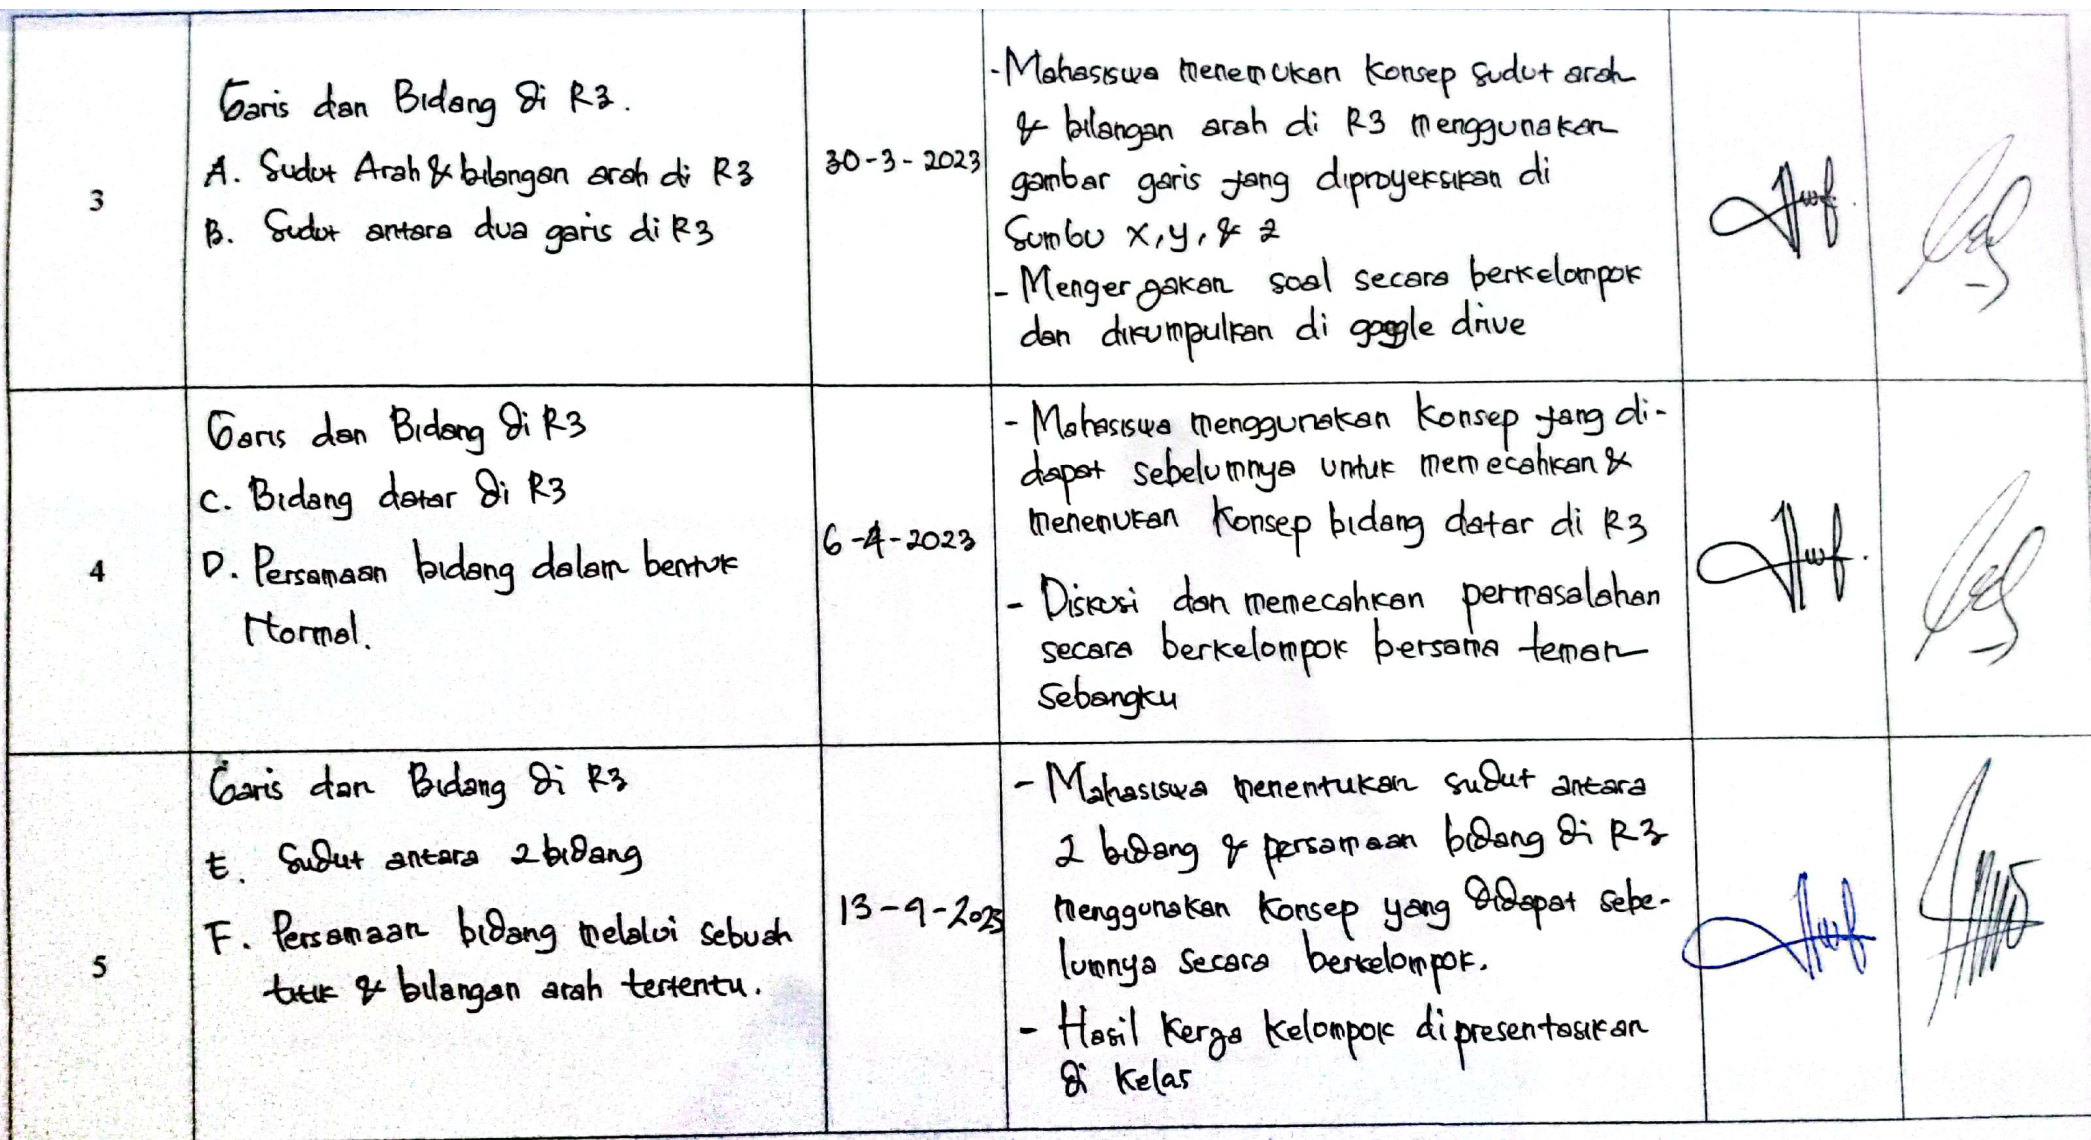 3
Garis dan Bidang di R3.
A. Sudut Arah & bilangan arah di R3
B. Sudut antara dua garis di R3
30-3-2023
- Mahasiswa menemukan Konsep sudut arah
& bilangan arah di R3 menggunakan
gambar garis yang diproyeksikan di
Sumbu x, y, & z
- Mengerjakan soal secara berkelompok
dan dikumpulkan di google drive
4
Garis dan Bidang di R3
C. Bidang datar di R3
D. Persamaan bidang dalam bentuk
Normal.
6-4-2023
- Mahasiswa menggunakan Konsep yang di-
dapat sebelumnya untuk memecahkan &
menemukan Konsep bidang datar di R3
- Diskusi dan memecahkan permasalahan
secara berkelompok bersama teman
sebangku
5
Garis dan Bidang di R3
E. Sudut antara 2 bidang
F. Persamaan bidang melalui sebuah
titik & bilangan arah tertentu.
13-4-2023
- Mahasiswa menentukan sudut antara
2 bidang & persamaan bidang di R3
menggunakan Konsep yang didapat sebe-
lumnya secara berkelompok.
- Hasil Kerja Kelompok dipresentasikan
di Kelas